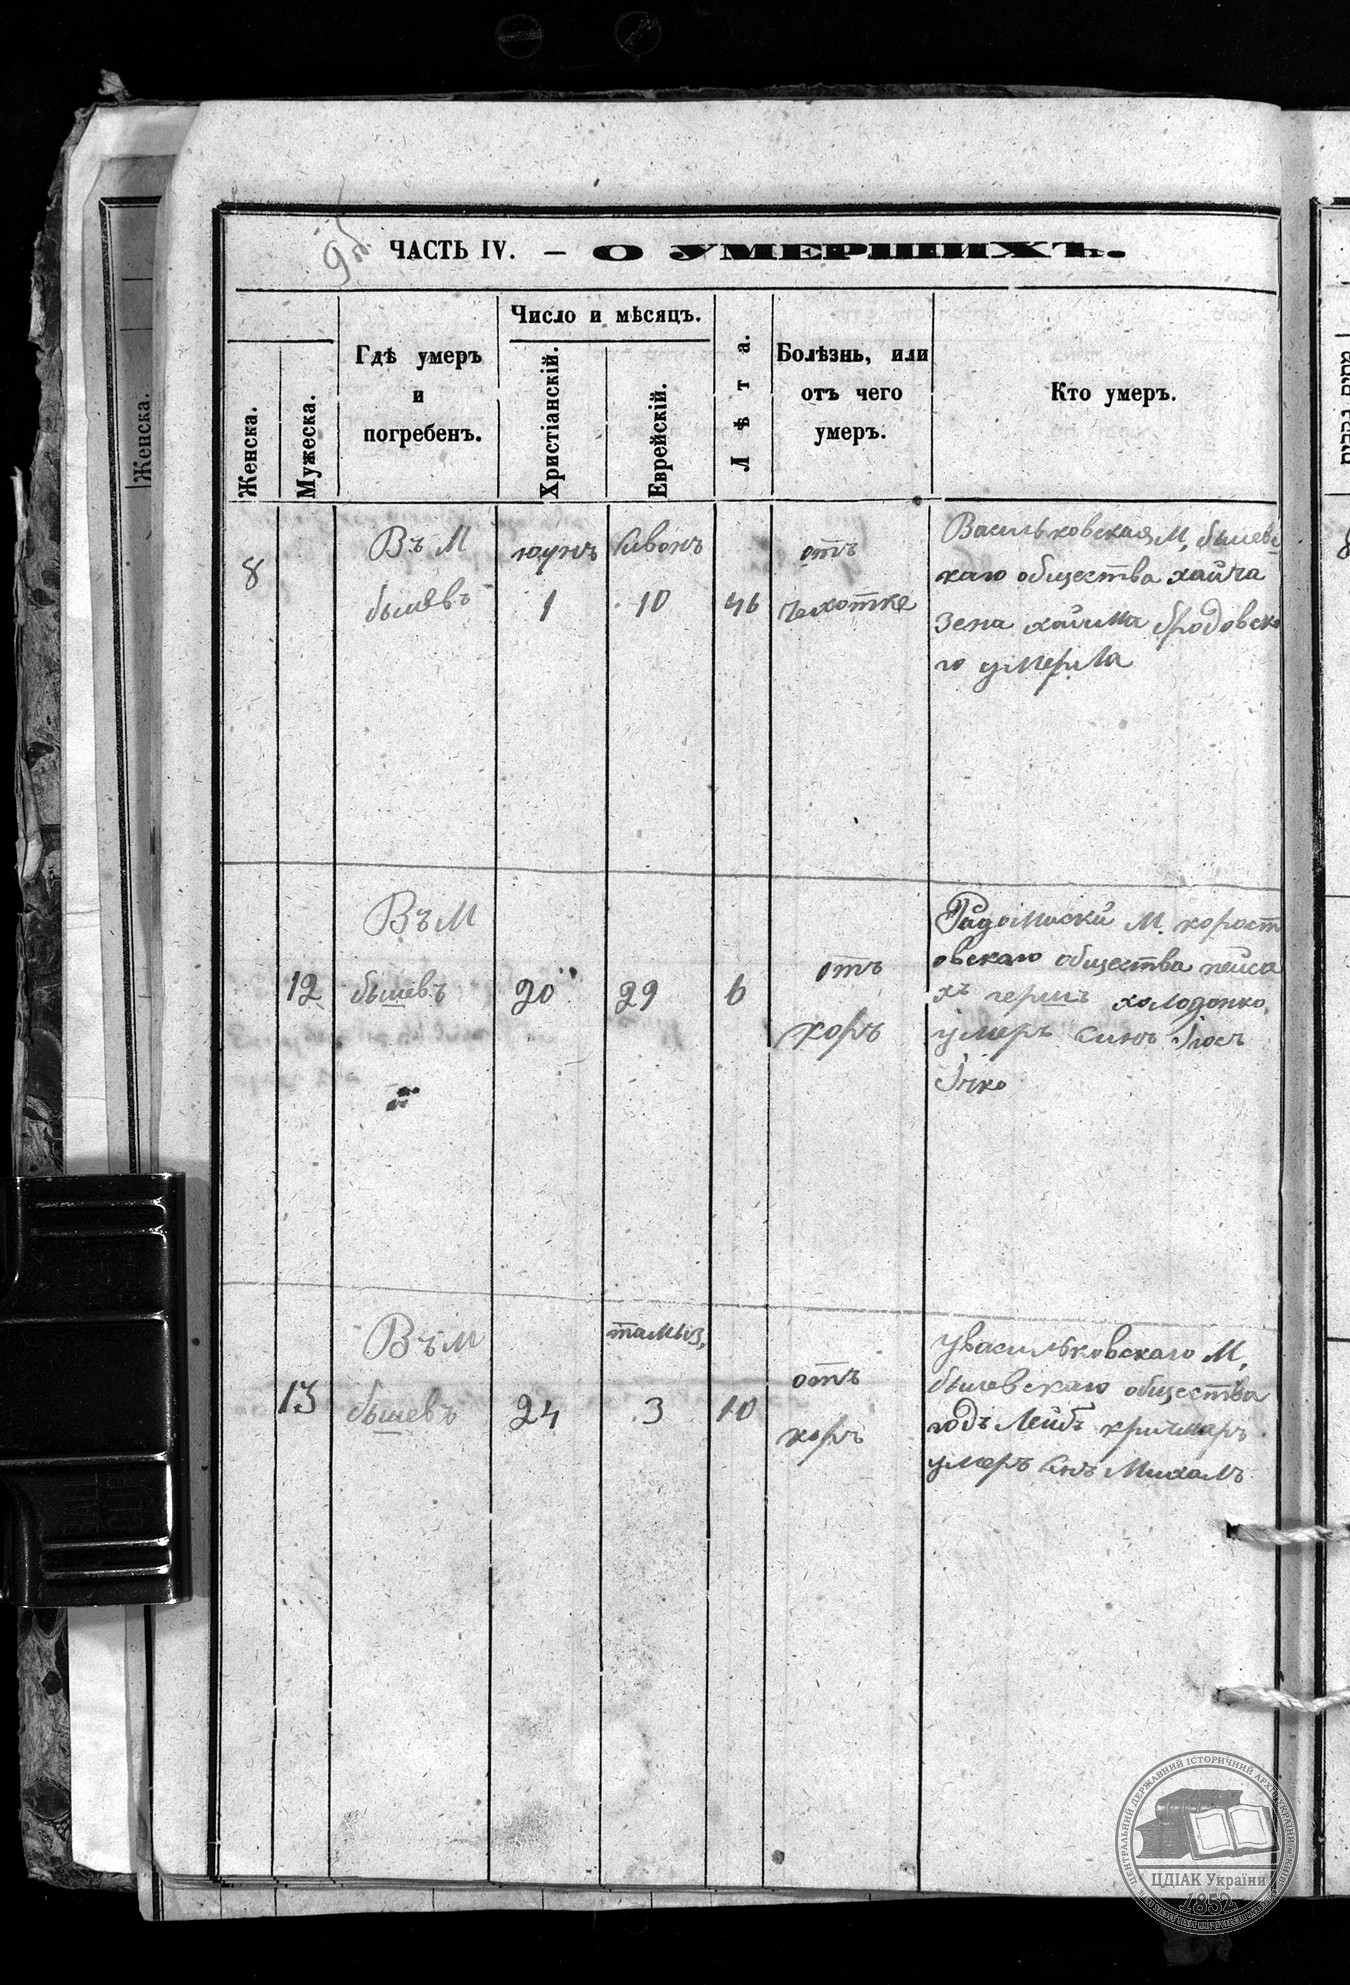 ЧАСТЬ IV. — О УМЕРШИХЪ.
Женска.
Мужеска.
Гдѣ умеръ
и
погребенъ.
Число и мѣсяцъ.
Христіанскій.
Еврейскій.
Лѣта.
Болѣзнь, или
отъ чего
умеръ.
Кто умеръ.
Женска.
8
Въ М
бышевъ
юунъ
1
Сивонъ
10
46
отъ
чехотке
Васильковская М. бышевс
каго общества хайча
зена хаима бродовско
го умерла
12
Въ М
бышевъ
20
29
6
отъ
коръ
Радомиски М. корост
овскаго общества пейса
хъ герш холодонко
умеръ синъ Іосъ
Ічко
13
Въ М
бышевъ
24
тамыз,
3
10
отъ
коръ
Увасильковскаго М,
бышевскаго общества
годъ Лейбъ кричмаръ
умеръ снъ Михалъ
ЦДІАК України
1852